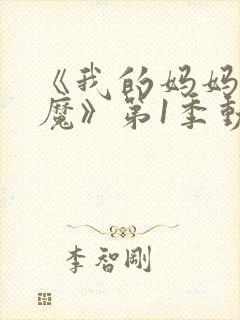 《我的妈妈
魔》第1季動
李智剛